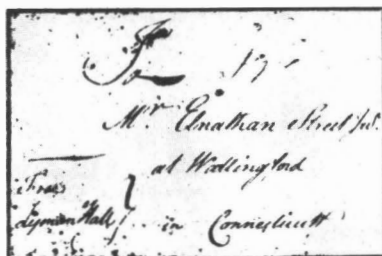 Mr. Elnathan Street Jur.
at Wallingford
Free
Lyman Hall in Connecticutt